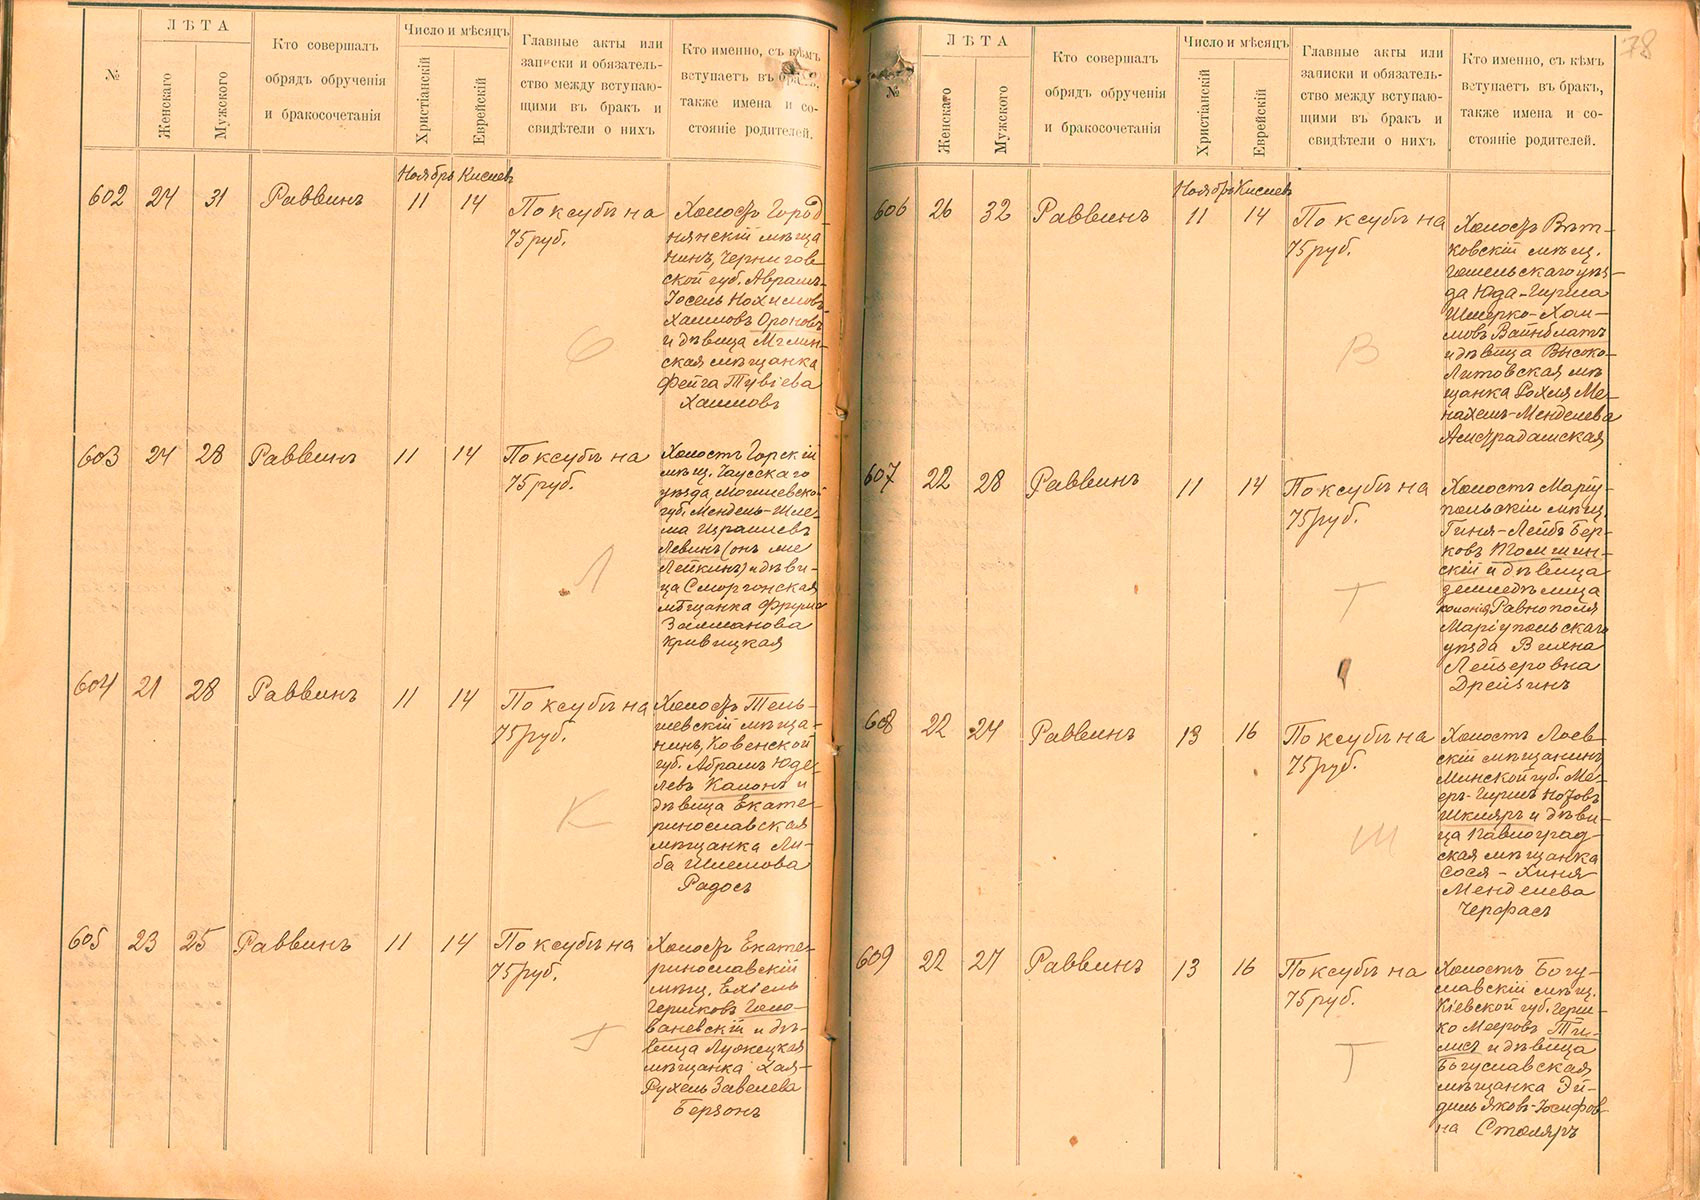 №
ЛѢТА
Женскаго
Мужского
Кто совершалъ
обрядъ обрученія
и бракосочетанія
Число и мѣсяцъ
Христіанскій
Еврейскій
Главные акты или
записки и обязатель-
ство между вступаю-
щими въ бракъ и
свидѣтели о нихъ
Кто именно, съ кѣмъ
вступаетъ въ бракъ,
также имена и со-
стояніе родителей.
Ноябрь Кислевъ
602 24 31 Раввинъ 11 14
По ксубѣ на
75 руб.
Холостъ Город-
нянскій мѣща
нинъ, Чернигов
ской губ. Абрамъ-
Іосель Нохимовъ
Хаимовъ Ороновъ
и дѣвица Мглин-
ская мѣщанка
Фейга Тувіева
Хаимовъ
С
603 24 28 Раввинъ 11 14
По ксубѣ на
75 руб.
Холостъ Горскій
мѣщ. Чаусскаго
уѣзда, Могилевской
губ. Мендель-Шле-
ма Израилевъ
Левинъ (онъ же
Лейкинъ) и дѣви-
ца Сморгонская
мѣщанка Фрума
Залманова
Кривицкая
Л
604 21 28 Раввинъ 11 14
По ксубѣ на
75 руб.
Холостъ Тель-
шевскій мѣща-
нинъ, Ковенской
губ. Абрамъ Юде-
левъ Капонъ и
дѣвица Екате-
ринославская
мѣщанка Ли-
ба Шлемова
Радосъ
К
605 23 25 Раввинъ 11 14
По ксубѣ на
75 руб.
Холостъ Екате-
ринославскій
мѣщ. Ехіель
Герцковъ Голо-
ваневскій и дѣ-
вица Лужецкая
мѣщанка Хая-
Рухель Завелева
Берзонъ
78
№
ЛѢТА
Женскаго
Мужского
Кто совершалъ
обрядъ обрученія
и бракосочетанія
Число и мѣсяцъ
Христіанскій
Еврейскій
Главные акты или
записки и обязатель-
ство между вступаю-
щими въ бракъ и
свидѣтели о нихъ
Кто именно, съ кѣмъ
вступаетъ въ бракъ,
также имена и со-
стояніе родителей.
Ноябрь Кислевъ
606 26 32 Раввинъ 11 14
По ксубѣ на
75 руб.
Холостъ Вѣт-
ковскій мѣщ.
Гомельскаго уѣз-
да Юда-Гирша
Шмерко-Хаи-
мовъ Вайнблатъ
и дѣвица Высоко-
Литовская мѣ
щанка Рохля Ме-
нахемъ-Менделева
Амстрадамская
В
607 22 28 Раввинъ 11 14
По ксубѣ на
75 руб.
Холостъ Маріу-
польскій мѣщ.
Гиня-Лейбъ Бер-
ковъ
скій и дѣвица
земледѣлица
колоніи Равнополя
Маріупольскаго
уѣзда Вихна
Лейзеровна
Дрейзинъ
Т
608 22 24 Раввинъ 13 16
По ксубѣ на
75 руб.
Холостъ Лоев-
скій мѣщанинъ
Минской губ. Ме-
еръ-Гиршъ Нотовъ
Шкляръ и дѣви-
ца Павлоград-
ская мѣщанка
Сося-Хиня
Менделева
Черфасъ
Ш
609 22 27 Раввинъ 13 16
По ксубѣ на
75 руб.
Холостъ Богу-
славскій мѣщ.
Кіевской губ. Герш-
ко Мееровъ Ти-
лисъ и дѣвица
Богуславская
мѣщанка Эй-
дель Яковъ-Іосифов-
на Столяръ
Т